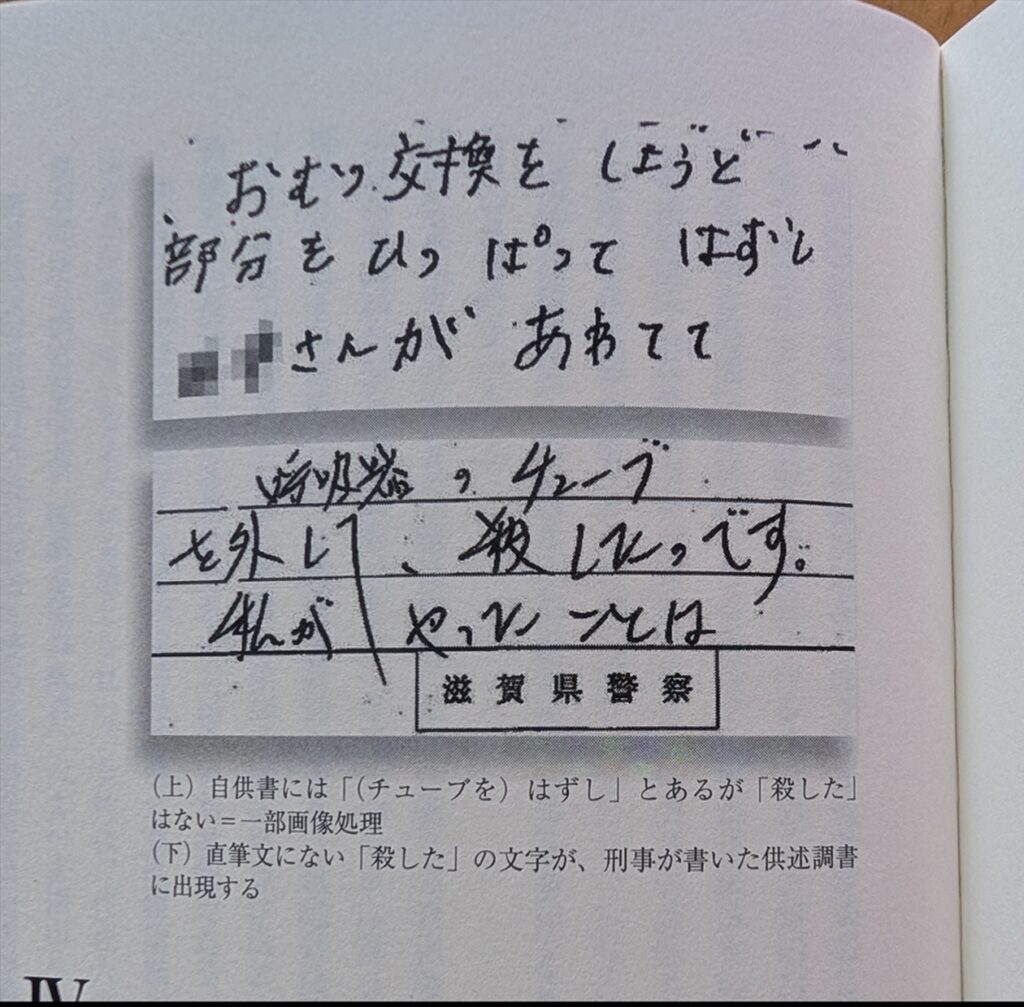 おむつ交換をしようと
部分をひっぱってはずし
さんがあわてて
呼吸器のチューブ
を外して、殺したのです。
私がやったことは
滋賀県警察
(上) 自供書には「(チューブを) はずし」とあるが「殺した」
はない＝一部画像処理
(下) 直筆文にない「殺した」の文字が、刑事が書いた供述調書
に出現する
IV